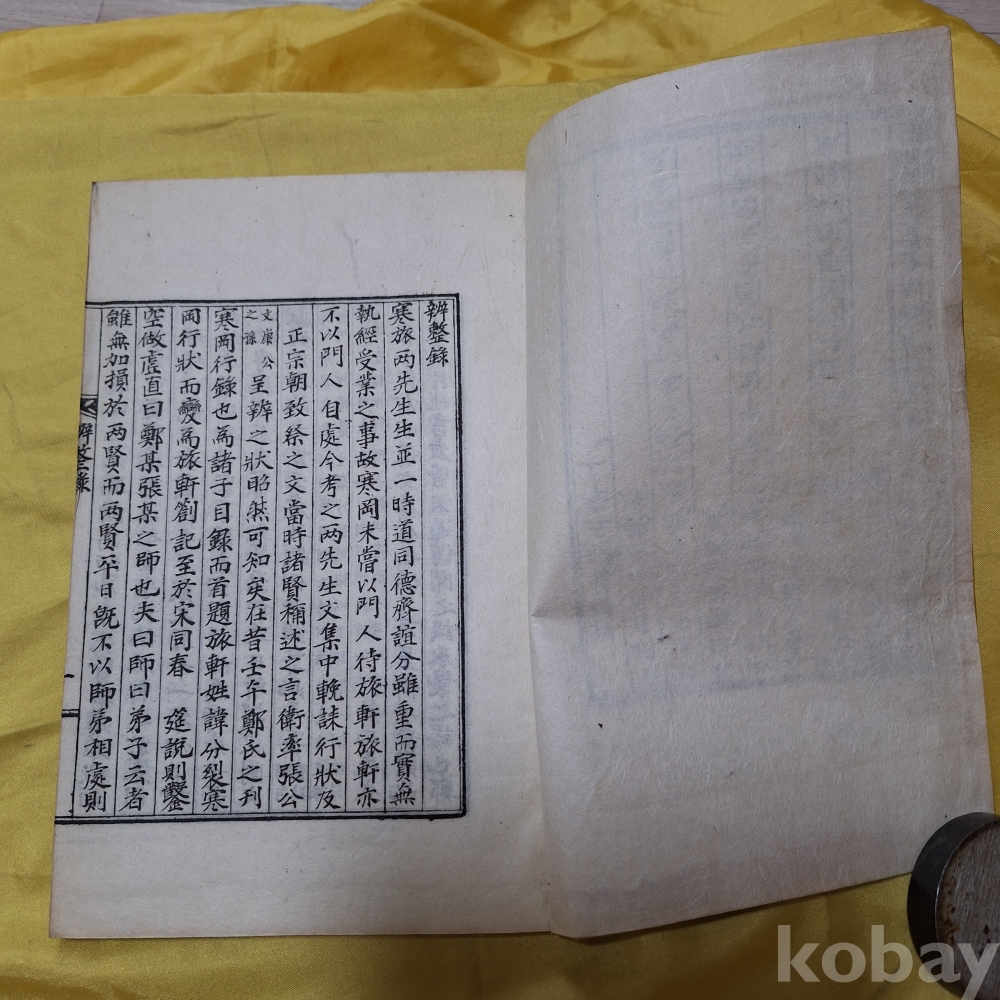 辨整錄
寒旅两先生生並一時道同德齊誼分雖重而實無
執經受業之事故寒岡未嘗以門人待旅軒旅軒亦
不以門人自處今考之两先生文集中輓誄行狀及
正宗朝致祭之文當時諸賢稱述之言衛率張公
文康公之孫 呈辨之狀昭然可知矣在昔壬午鄭氏之刊
寒岡行錄也為諸子目錄而首題旅軒姓諱分裂寒
岡行狀而變為旅軒劄記至於宋同春 筵說則鑿
空做虛直曰鄭某張某之師也夫曰師曰弟子云者
雖無加損於两賢而两賢平日旣不以師弟相處則
辨整錄
一
kobay